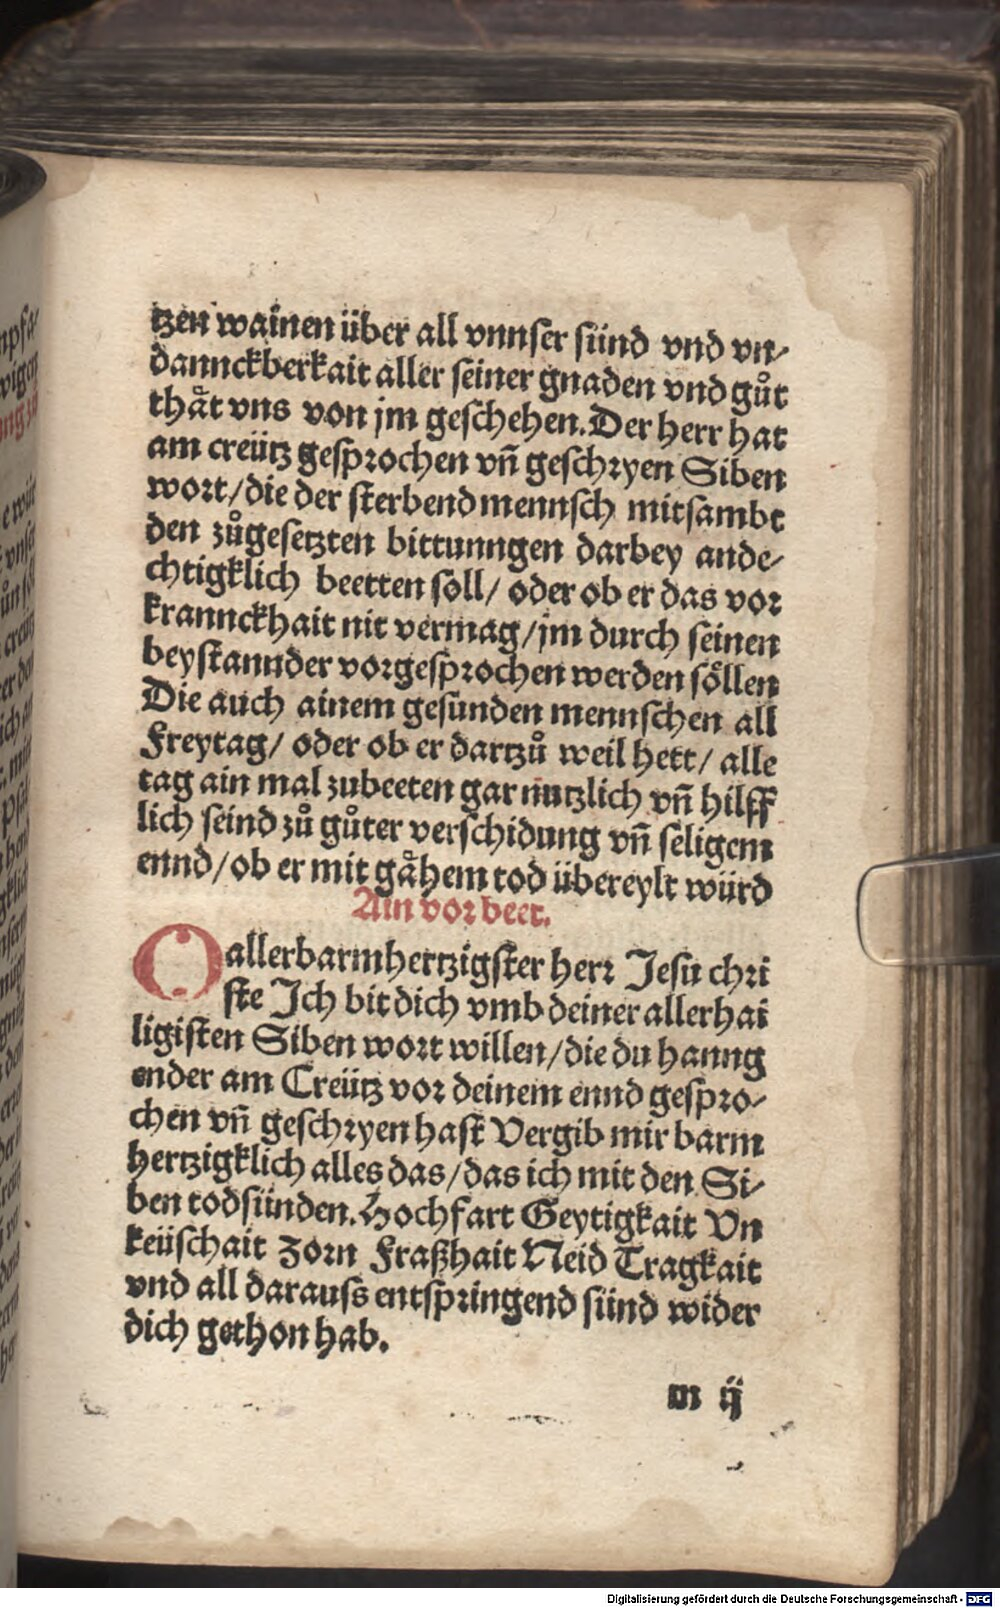 tzen wainen über all vnnser sünd vnd vn⸗
dannckberkait aller seiner gnaden vnd gůt
thåt vns von jm geschehen. Der herr hat
am creütz gesprochen vñ geschryen Siben
wort/ die der sterbend mennsch mitsambt
den zůgesetzten bittunngen darbey ande⸗
chtigklich beetten soll/ oder ob er das vor
kranckhait nit vermag/ jm durch seinen
beystannder vorgesprochen werden söllen
Die auch ainem gesunden mennschen all
Freytag/ oder ob er dartzů weil hett/ alle
tag ain mal zubeeten gar nutzlich vñ hilff
lich seind zů gůter verschidung vñ seligem
ennd/ ob er mit gåhem tod übereylt würd
Ain vor beet.
O allerbarmhertzigster herr Jesu chri
ste Ich bit dich vmb deiner allerhai
ligisten Siben wort willen/ die du hanng
ender am Creütz vor deinem ennd gespro⸗
chen vñ geschryen hast Vergib mir barm
hertzigklich alles das/ das ich mit den Si⸗
ben todsünden. Hochfart Geytigkait Vn
keüschait Zorn Fraßhait Neid Tragkait
vnd all darauss entspringend sünd wider
dich gethon hab.
m ij
Digitalisierung gefördert durch die Deutsche Forschungsgemeinschaft - DFG